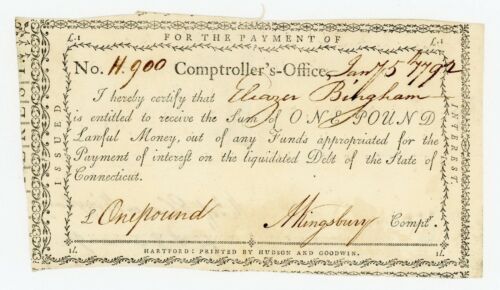 £.1 FOR THE PAYMENT OF £.1
No. H.900 Comptroller's-Office, Jany 5 1792
I hereby certify that Eleazer Bingham
is entitled to receive the Sum of ONE POUND
Lawful Money, out of any Funds appropriated for the
Payment of interest on the liquidated Debt of the State of
Connecticut.
£ One pound AKingsbury Compt.r
1l. HARTFORD: PRINTED BY HUDSON AND GOODWIN. 1l.
ISSUED
INTEREST.